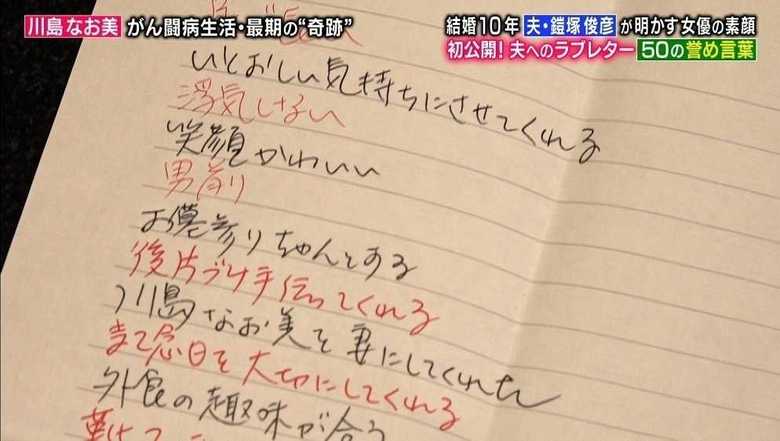 川島なお美 がん闘病生活・最期の“奇跡”
結婚10年 夫・鎧塚俊彦が明かす女優の素顔
初公開！夫へのラブレター 50の誉め言葉
いとおしい気持ちにさせてくれる
浮気しない
笑顔かわいい
男前り
お墓参りちゃんとする
後片づけ手伝ってくれる
川島なお美を妻にしてくれた
まて念日を大切にしてくれる
外食の趣味が合う